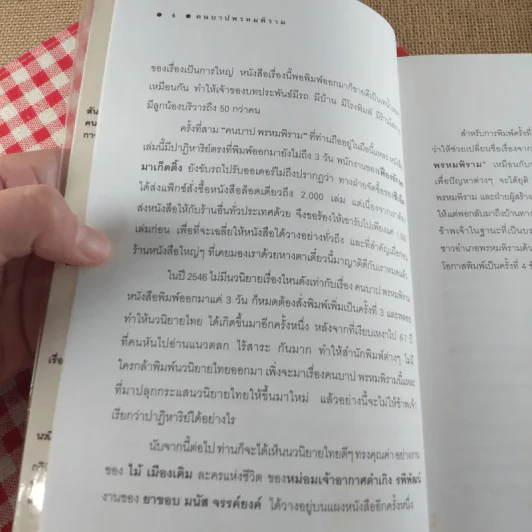 ● 4 ● คนบาปพรหมพิราม
ของเรื่องเป็นการใหญ่ หนังสือเรื่องนี้พอพิมพ์ออกมาก็ขายดีเป็น
เหมือนกัน ทำให้เจ้าของบทประพันธ์มีรถ มีบ้าน มีโรงพิมพ์ มีร้าน
มีลูกน้องบริวารถึง 50 กว่าคน
ครั้งที่สาม "คนบาป พรหมพิราม" ที่ท่านถืออยู่ในมือนี้แหละ
เล่มนี้มีปาฏิหาริย์ตรงที่พิมพ์ออกมายังไม่ถึง 3 วัน พนักงานของ
มาเก็ตติ้ง ยังขับรถไปรับออเดอร์ไม่ถึงปรากฏว่า ทางฝ่ายจัดซื้อของ
ได้ส่งแฟ็กซ์สั่งซื้อหนังสือล็อตเดียวถึง 2,000 เล่ม แต่เนื่องจากเราต้อง
ส่งหนังสือให้กับร้านอื่นทั่วประเทศด้วย จึงขอร้องให้เขารับไปเพียงแค่ 1,000
เล่มก่อน เพื่อที่จะเฉลี่ยให้หนังสือได้วางอย่างทั่วถึง และที่สำคัญ
ร้านหนังสือใหญ่ๆ ที่เคยมองเราด้วยหางตาเดี๋ยวนี้มาญาติดีกับเราหมดแล้ว
ในปี 2546 ไม่มีนวนิยายเรื่องไหนดังเท่ากับเรื่อง คนบาป พรหมพิราม
หนังสือพิมพ์ออกมาแค่ 3 วัน ก็หมดต้องสั่งพิมพ์เพิ่มเป็นครั้งที่ 3 และ
ทำให้นวนิยายไทย ได้เกิดขึ้นมาอีกครั้งหนึ่ง หลังจากที่เงียบเหงาไป 6-7 ปี
ที่คนหันไปอ่านแนวตลก ไร้สาระ กันมาก ทำให้สำนักพิมพ์ต่างๆ ไม่มี
ใครกล้าพิมพ์นวนิยายไทยออกมา เพิ่งจะมาเรื่องคนบาป พรหมพิรามนี้แหละ
ที่มาปลุกกระแสนวนิยายไทยให้ขึ้นมาใหม่ แล้วอย่างนี้จะไม่ให้ข้าพเจ้า
เรียกว่าปาฏิหาริย์ได้อย่างไร
นับจากนี้ต่อไป ท่านก็จะได้เห็นนวนิยายไทยดีๆ ทรงคุณค่า อย่างงาน
ของ ไม้ เมืองเดิม ละครแห่งชีวิต ของหม่อมเจ้าอากาศดำเกิง รพีพัฒน์
งานของ ยาขอบ มนัส จรรค์ยงค์ ได้วางอยู่บนแผงหนังสืออีกครั้งหนึ่ง
สำหรับการพิมพ์ครั้งที่
ว่าให้ช่วยเปลี่ยนชื่อเรื่องจาก
พรหมพิราม" เหมือนกับ
เพื่อปัญหาต่างๆ จะได้ยุติ
พรหมพิราม และฝ่ายผู้สร้าง
ให้แต่พอกลับมาถึงบ้านทาง
ข้าพเจ้าในฐานะที่เป็น
ชาวอำเภอพรหมพิรามด้วย
โอกาสพิมพ์เป็นครั้งที่ 4